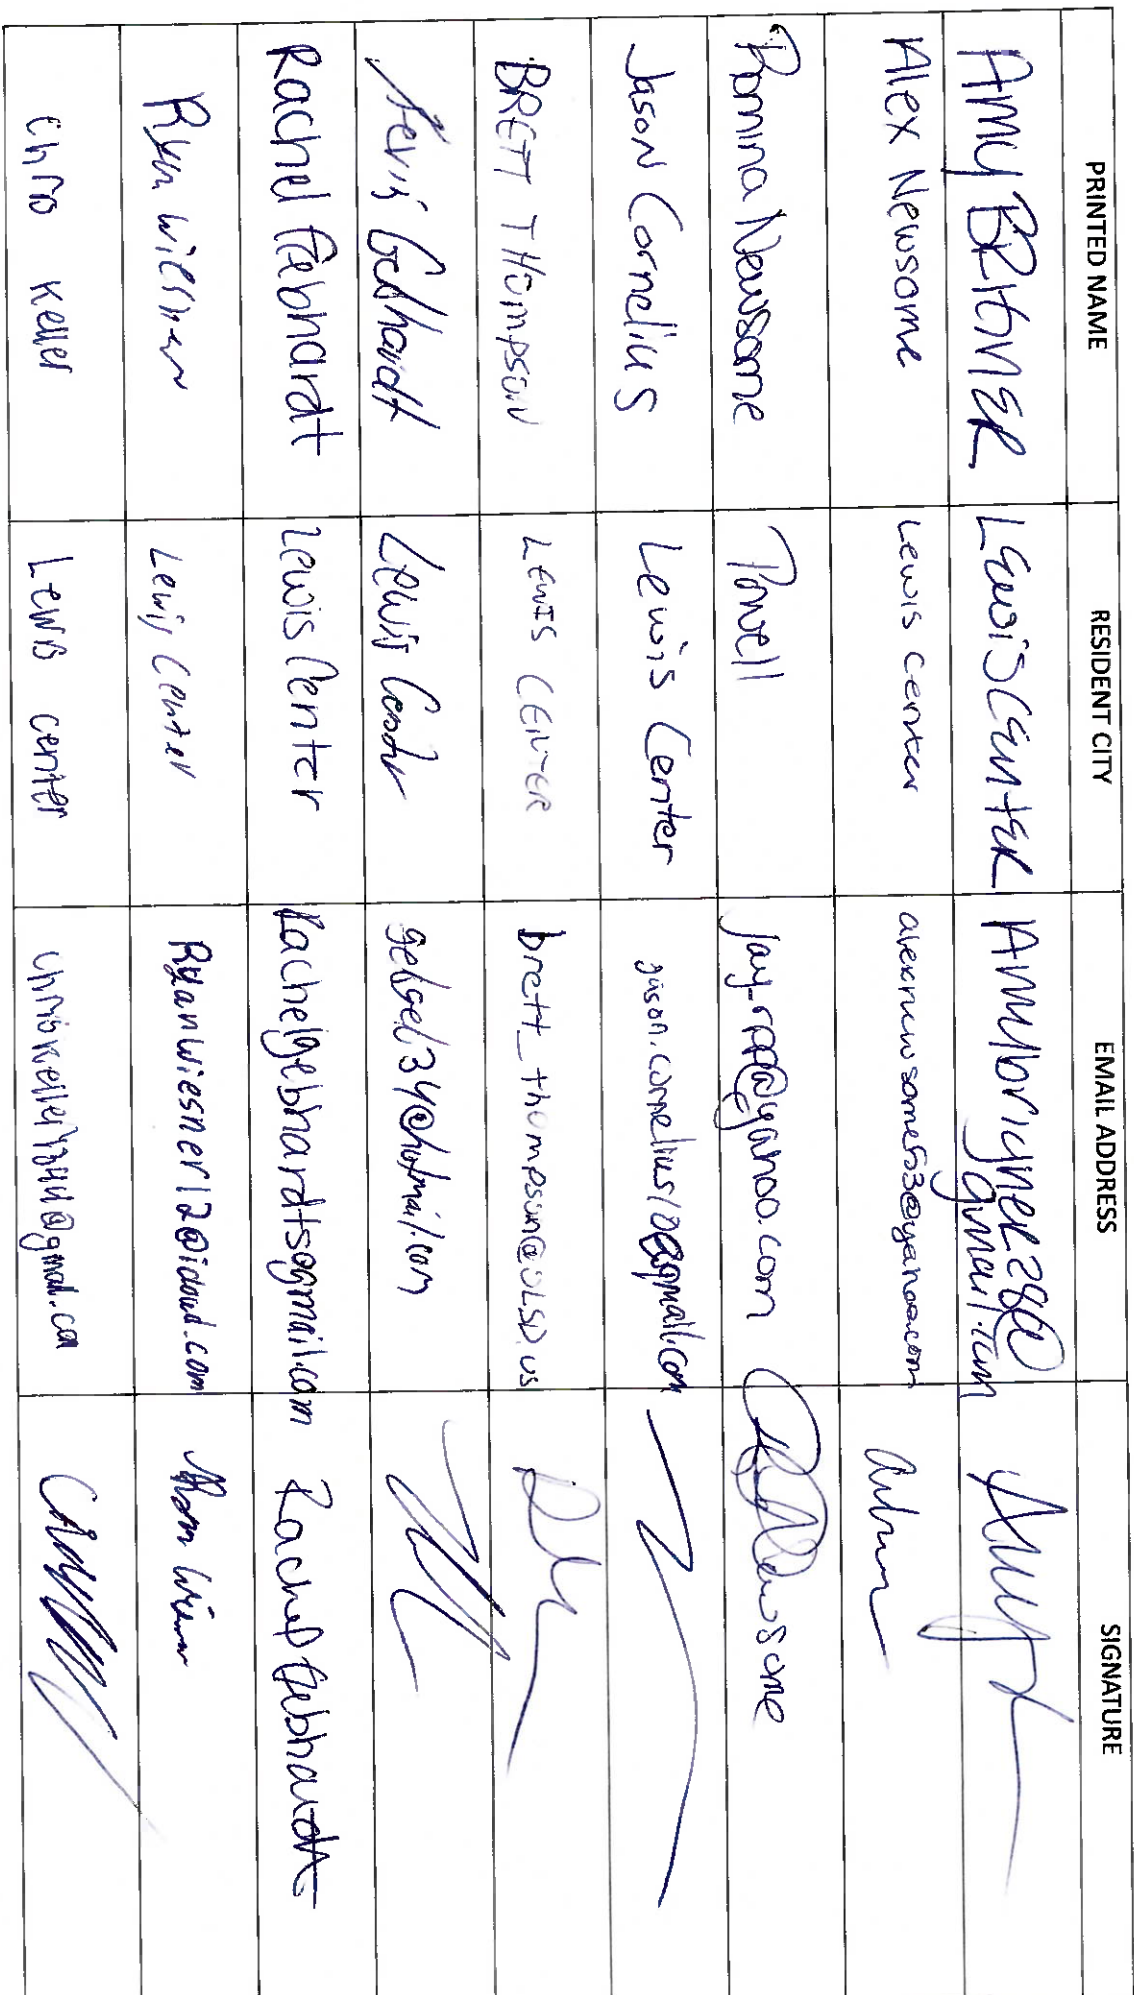 PRINTED NAME RESIDENT CITY EMAIL ADDRESS SIGNATURE
Amy BRIGNER LEWIS CENTER Amybrigner28@
gmail.com
Alex Newsome Lewis Center alexnewsome53@yahoo.com
Romina Newsome Powell jay_rod@yahoo.com Newsome
Jason Cornelius Lewis Center jason.cornelius10@gmail.com
BRETT THOMPSON LEWIS CENTER brett_thompson@OLSD.us
Kevin Gebhardt Lewis Center gebgeb34@hotmail.com
Rachel Gebhardt Lewis Center rachelgebhardt5@gmail.com Rachel Gebhardt
Ryan Wiesner Lewis Center Ryanwiesner12@icloud.com
Chris Keller Lewis center